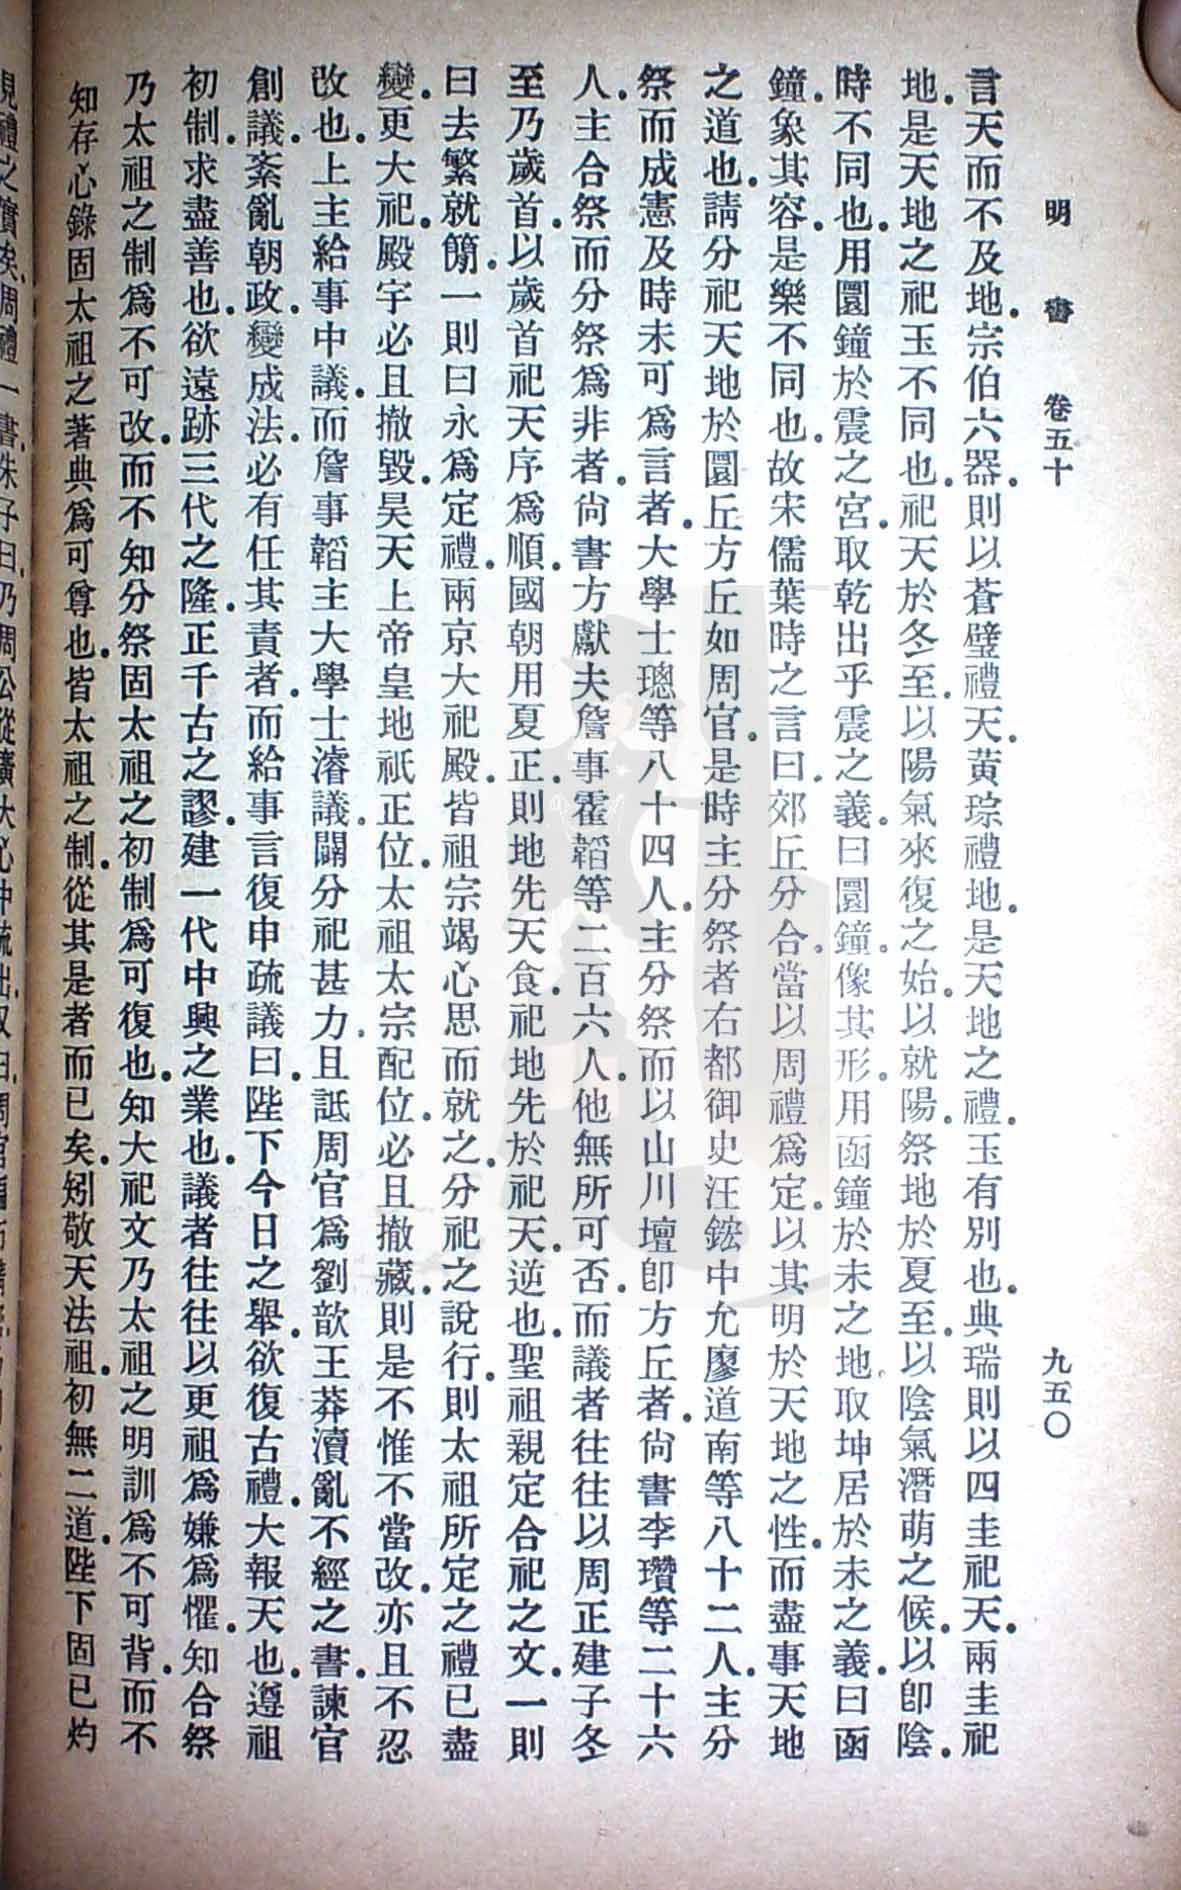 明書 卷五十 九五〇
言天而不及地.宗伯六器.則以蒼璧禮天.黃琮禮地.是天地之禮.玉有別也.典瑞則以四圭祀天.兩圭祀
地.是天地之祀玉不同也.祀天於冬至.以陽氣來復之始.以就陽.祭地於夏至.以陰氣潛萌之候.以卽陰.
時不同也.用圜鐘於震之宮.取乾出乎震之義.曰圜鐘.像其形.用函鐘於未之地.取坤居於未之義.曰函
鐘.象其容.是樂不同也.故宋儒葉時之言曰.郊丘分合.當以周禮爲定.以其明於天地之性.而盡事天地
之道也.請分祀天地於圜丘方丘如周官.是時主分祭者右都御史汪鋐中允廖道南等八十二人.主分
祭而成憲及時未可爲言者.大學士璁等八十四人.主分祭而以山川壇卽方丘者.尙書李瓚等二十六
人.主合祭而分祭爲非者.尙書方獻夫詹事霍韜等二百六人.他無所可否.而議者往往以周正建子冬
至乃歲首.以歲首祀天序爲順.國朝用夏正.則地先天食.祀地先於祀天.逆也.聖祖親定合祀之文.一則
曰去繁就簡.一則曰永爲定禮.兩京大祀殿.皆祖宗竭心思而就之.分祀之說行.則太祖所定之禮已盡
變.更大祀.殿宇必且撤毀.昊天上帝皇地祇正位.太祖太宗配位.必且撤藏.則是不惟不當改.亦且不忍
改也.上主給事中議.而詹事韜主大學士濬議.闢分祀甚力.且詆周官爲劉歆王莽瀆亂不經之書.諫官
創議.紊亂朝政.變成法.必有任其責者.而給事言復申疏議曰.陛下今日之舉.欲復古禮.大報天也.遵祖
初制.求盡善也.欲遠跡三代之隆.正千古之謬.建一代中興之業也.議者往往以更祖爲嫌爲懼.知合祭
乃太祖之制爲不可改.而不知分祭固太祖之初制爲可復也.知大祀文乃太祖之明訓爲不可背.而不
知存心錄固太祖之著典爲可尊也.皆太祖之制.從其是者而已矣.矧敬天法祖.初無二道.陛下固已灼